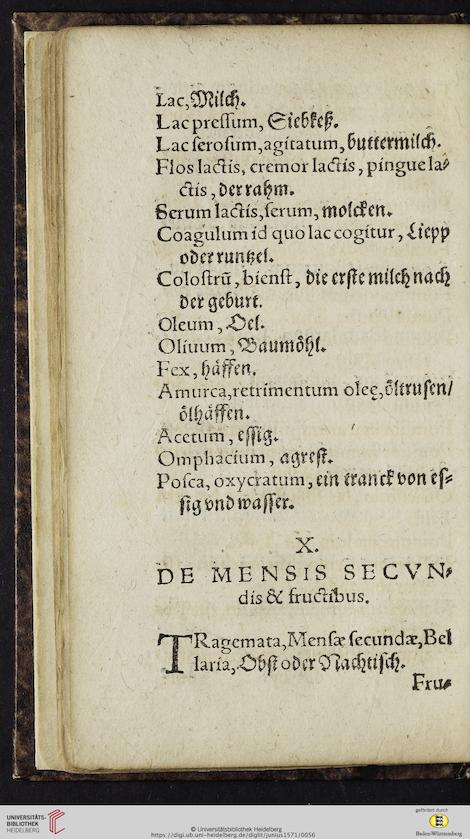 Lac, Milch.
Lac pressum, Siebkeß.
Lac serosum, agitatum, buttermilch.
Flos lactis, cremor lactis, pingue la⸗
ctis, der rahm.
Serum lactis, serum, molcken.
Coagulum id quo lac cogitur, Liepp
oder runtzel.
Colostrũ, bienst, die erste milch nach
der geburt.
Oleum, Oel.
Oliuum, Baumöhl.
Fex, häffen.
Amurca, retrimentum oleę, öltrusen/
ölhäffen.
Acetum, essig.
Omphacium, agrest.
Posca, oxycratum, ein tranck von es⸗
sig vnd wasser.
X.
DE MENSIS SECVN⸗
dis & fructibus.
TRagemata, Mensæ secundæ, Bel
laria, Obst oder Nachtisch.
Fru⸗
UNIVERSITÄTS-
BIBLIOTHEK
HEIDELBERG
© Universitätsbibliothek Heidelberg
https://digi.ub.uni-heidelberg.de/diglit/junius1571/0056
gefördert durch
Baden-Württemberg